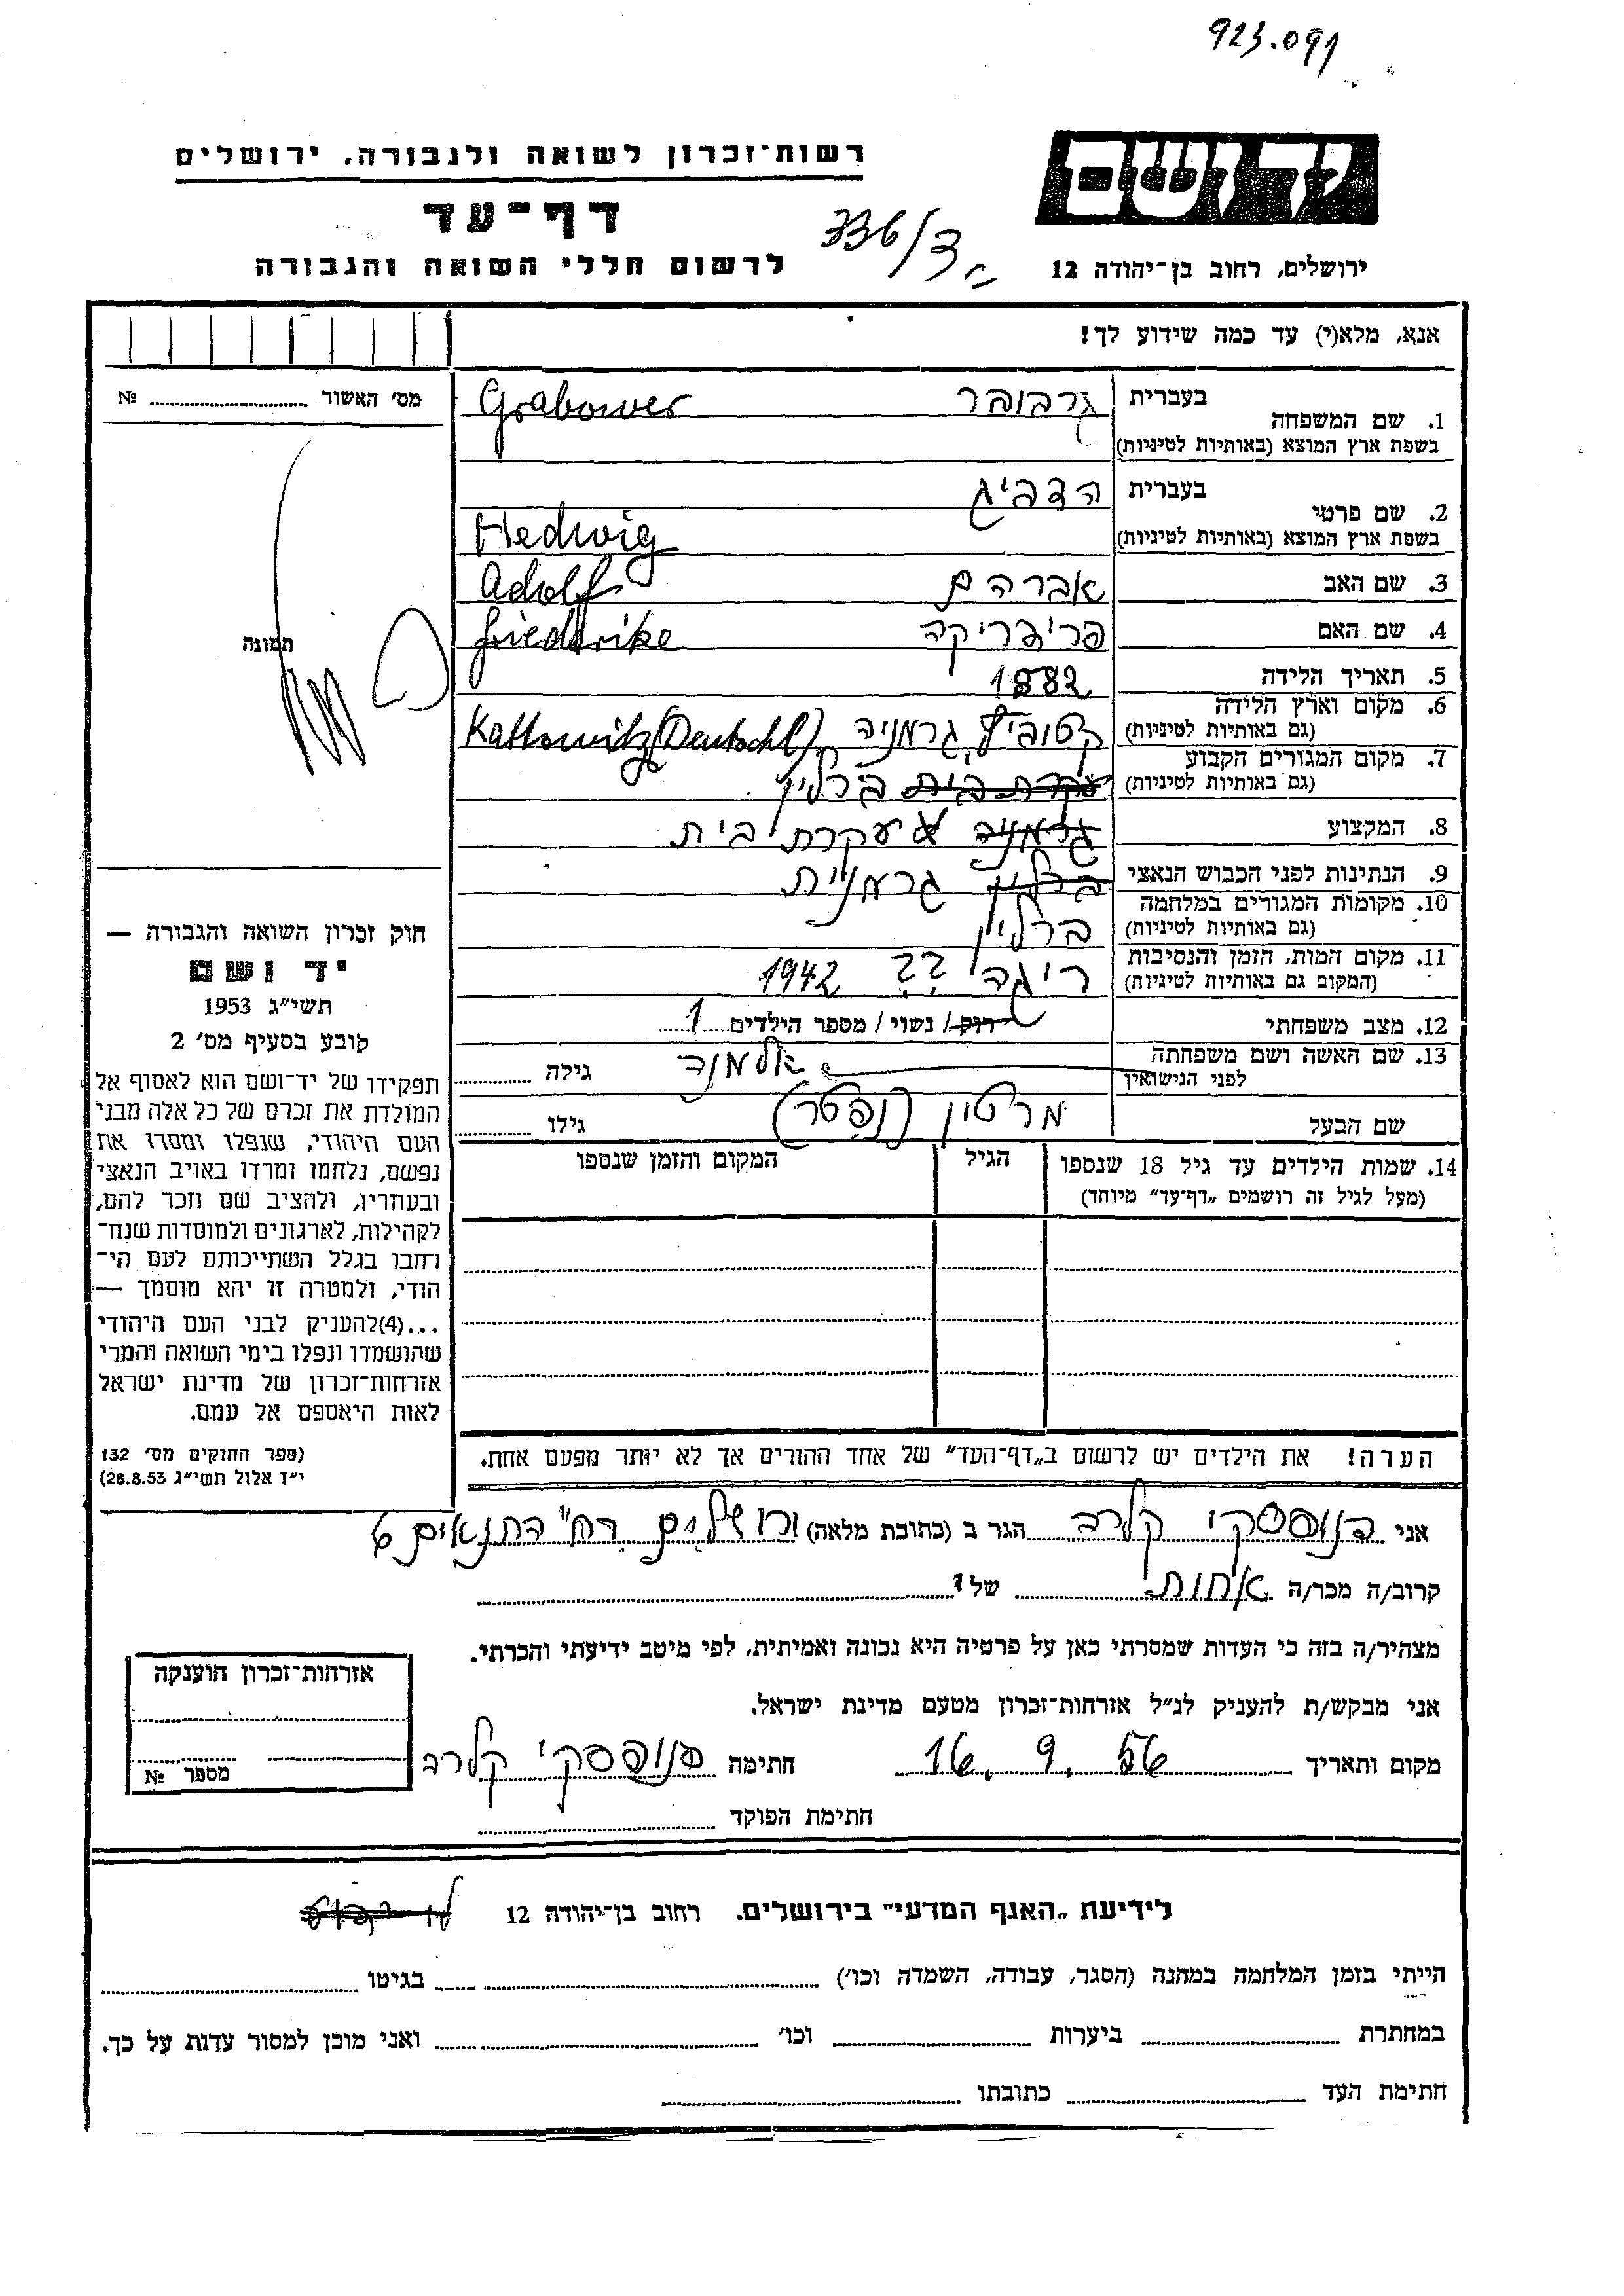 923.091
רשות-זכרון לשואה ולגבורה, ירושלים
יד ושם
דף-עד
736/3
לרשום חללי השואה והגבורה
ירושלים, רחוב בן-יהודה 12
אנא, מלא(י) עד כמה שידוע לך!
מס' האשור № ........
תמונה
חוק זכרון השואה והגבורה —
יד ושם
תשי"ג 1953
קובע בסעיף מס' 2
תפקידו של יד-ושם הוא לאסוף אל
המולדת את זכרם של כל אלה מבני
העם היהודי, שנפלו ומסרו את
נפשם, נלחמו ומרדו באויב הנאצי
ובעוזריו, ולהציב שם וזכר להם,
לקהילות, לארגונים ולמוסדות שנח-
רחבו בגלל השתייכותם לעם הי-
הודי, ולמטרה זו יהא מוסמך —
...(4)להעניק לבני העם היהודי
שהושמדו ונפלו בימי השואה והמרי
אזרחות-זכרון של מדינת ישראל
לאות היאספם אל עמם.
(ספר החוקים מס' 132
י"ז אלול תשי"ג 28.8.53)
1. שם המשפחה בעברית גרבובר
בשפת ארץ המוצא (באותיות לטיניות) Grabower
2. שם פרטי בעברית הדביג
בשפת ארץ המוצא (באותיות לטיניות) Hedwig
3. שם האב אברהם Adolf
4. שם האם פרידריקה Friedrike
5. תאריך הלידה 1882
6. מקום וארץ הלידה (גם באותיות לטיניות) קטוביץ, גרמניה Kattowitz (Deutschl)
7. מקום המגורים הקבוע (גם באותיות לטיניות) עקרת בית ברלין
8. המקצוע גרמניה עקרת בית
9. הנתינות לפני הכבוש הנאצי ברלין גרמנית
10. מקומות המגורים במלחמה (גם באותיות לטיניות) ברלין
11. מקום המות, הזמן והנסיבות (המקום גם באותיות לטיניות) ריגה ?? 1942
12. מצב משפחתי רוק / נשוי / מספר הילדים 1
13. שם האשה ושם משפחתה לפני הנישואין אלמנה גילה
שם הבעל מרטין (נפטר) גילו
14. שמות הילדים עד גיל 18 שנספו הגיל המקום והזמן שנספו
(מעל לגיל זה רושמים "דף-עד" מיוחד)
הערה! את הילדים יש לרשום ב"דף-העד" של אחד ההורים אך לא יותר מפעם אחת.
אני קלרה הגר ב (כתובת מלאה) ירושלים רח' התנאים 6
קרוב/ה מכר/ה אחות של
מצהיר/ה בזה כי העדות שמסרתי כאן על פרטיה היא נכונה ואמיתית, לפי מיטב ידיעתי והכרתי.
אני מבקש/ת להעניק לנ"ל אזרחות-זכרון מטעם מדינת ישראל.
מקום ותאריך 16. 9. 56 חתימה קלרה
חתימת הפוקד
אזרחות-זכרון הוענקה
מספר №
לידיעת "האגף המדעי" בירושלים. רחוב בן-יהודה 12
הייתי בזמן המלחמה במחנה (הסגר, עבודה, השמדה וכו') בגיטו
במחתרת ביערות וכו' ואני מוכן למסור עדות על כך.
חתימת העד כתובתו